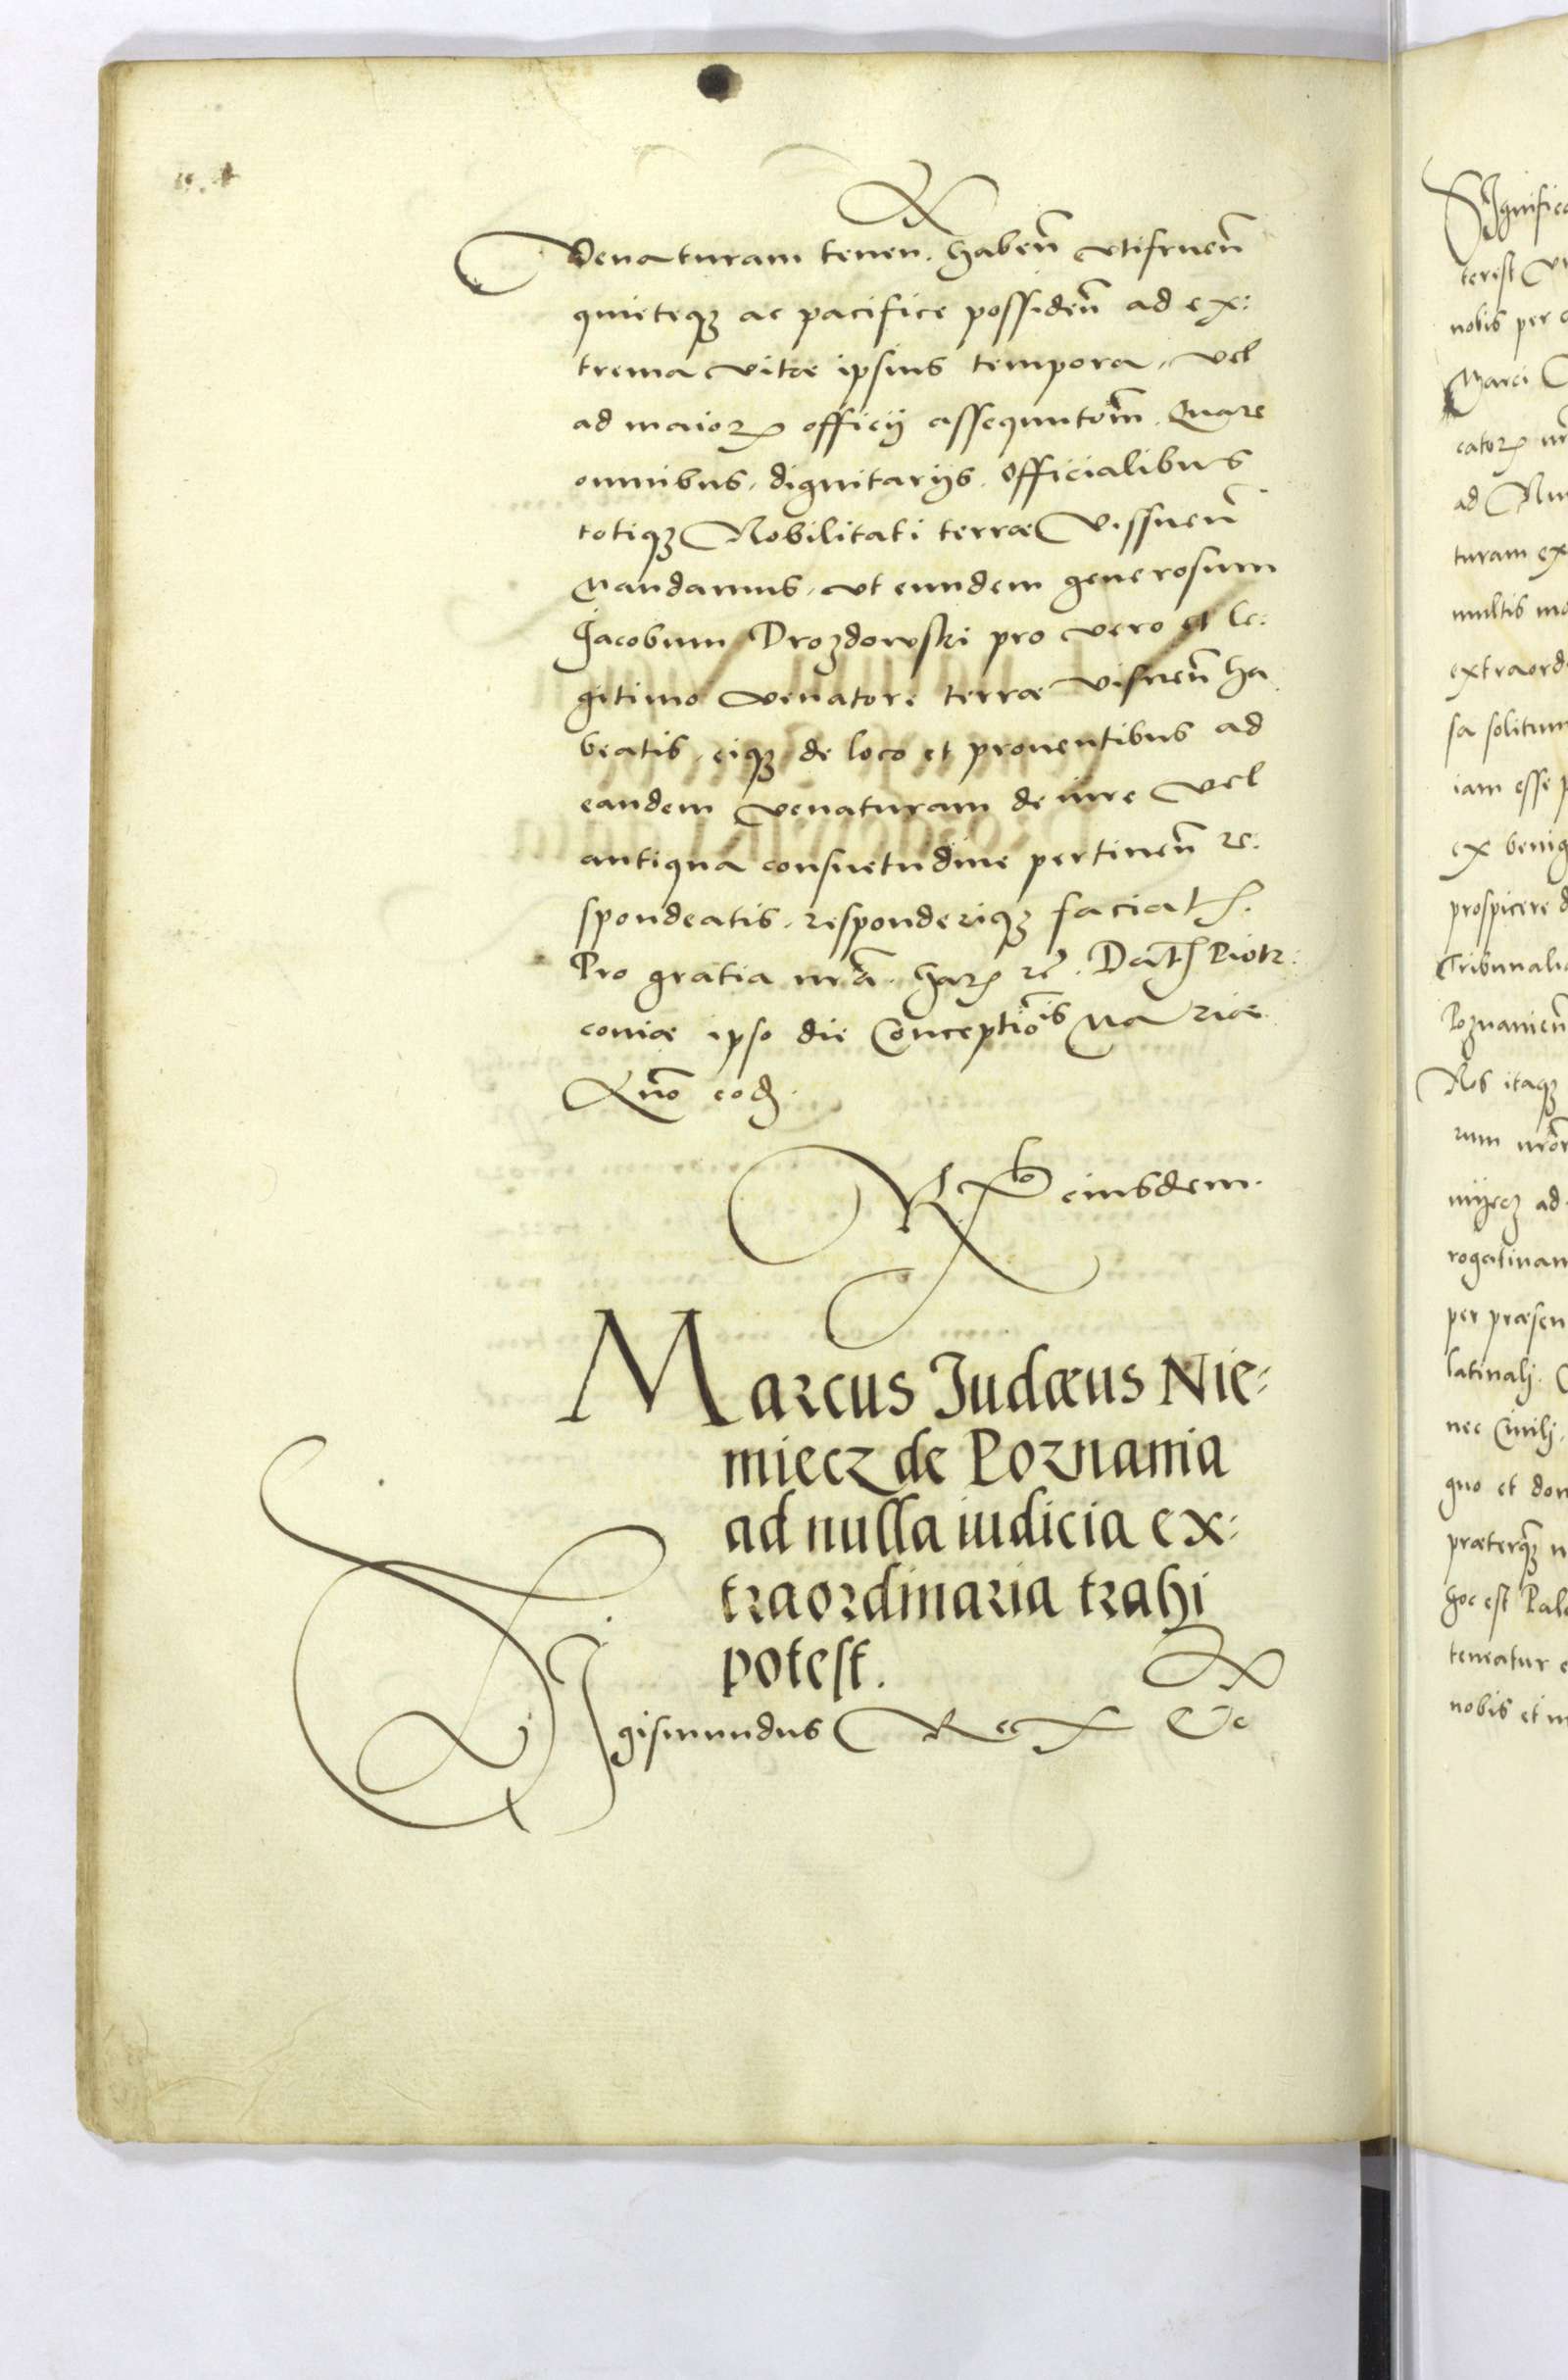 Venaturam tenen. habeñ vtifrueñ
quieteqꝫ ac pacifice possideñ ad ex:
trema vitæ ipsius tempora, vel
ad maioꝝ officij assequutõm. Quare
omnibus, dignitarijs, officialibus
totiqꝫ Nobilitati terræ Vissneñ
Mandamus, vt eundem generosum
Jacobum Drozdowski pro vero et le:
gitimo venatore terræ Visneñ ha
beatis, eiqꝫ de loco et prouentibus ad
eandem venaturam de iure vel
antiqua consuetudine pertineñ re:
spondeatis, responderiqꝫ faciatꝭ.
Pro gratia nr̃a. harꝝ rẽ. Datꝭ Piotr:
coniæ ipso die Conceptiõis Mariæ
Año eod.
Rxlo eiusdem.
Marcus Judæus Nie:
miecz de Poznania
ad nulla iudicia ex:
traordinaria trahi
potest.
Sigismundus Rex &c
Signific
terest
nobis per
Marci
catoꝝ
ad
turam ex
multis
extraord
sa solitum
iam esse
ex benig
prospicere
Tribunali
Poznanieñ
Nos itaqꝫ
rum
ad
rogatiuam
per præsen
latinalj.
nec Ciuilj,
quo et dom
præterqꝫ
hoc est Pala
teneatur
nobis et